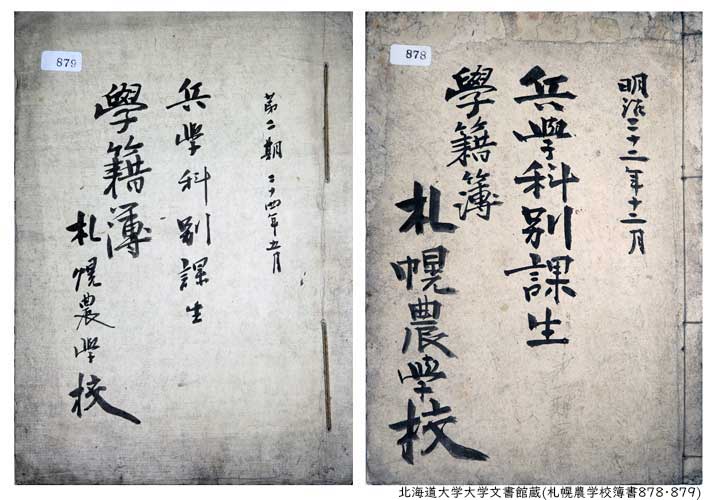 879
第二期 二十四年五月
兵學科別課生
學籍簿
札幌農學校
878
明治二十二年十二月
兵學科別課生
學籍簿
札幌農學校
北海道大学大学文書館蔵(札幌農学校簿書878･879)